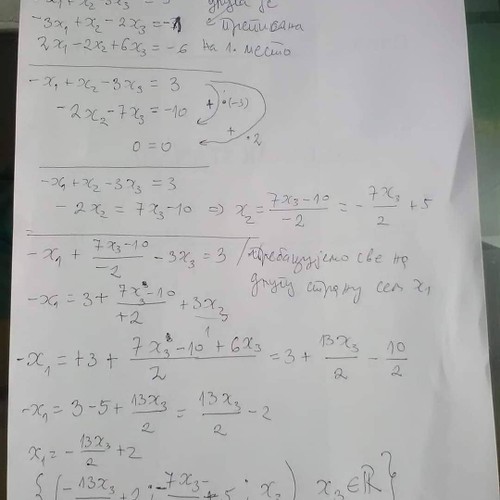 x₁+x₂-3x₃=3 друга је
-3x₁+x₂-2x₃=-1 преписана
2x₁-2x₂+6x₃=-6 на 1. место
-x₁+x₂-3x₃=3
-2x₂-7x₃=-10 + ·(-3)
0=0 + ·2
-x₁+x₂-3x₃=3
-2x₂=7x₃-10 ⇒ x₂=(7x₃-10)/(-2)=-7x₃/2+5
-x₁+(7x₃-10)/(-2)-3x₃=3 / пребацујемо све на
другу страну сем x₁
-x₁=3+(7x₃-10)/(+2)+3x₃/1
-x₁=+3+(7x₃-10+6x₃)/2=3+13x₃/2-10/2
-x₁=3-5+13x₃/2=13x₃/2-2
x₁=-13x₃/2+2
{(-13x₃/2+2; -7x₃/2+5; x₃) x₃∈ℝ}